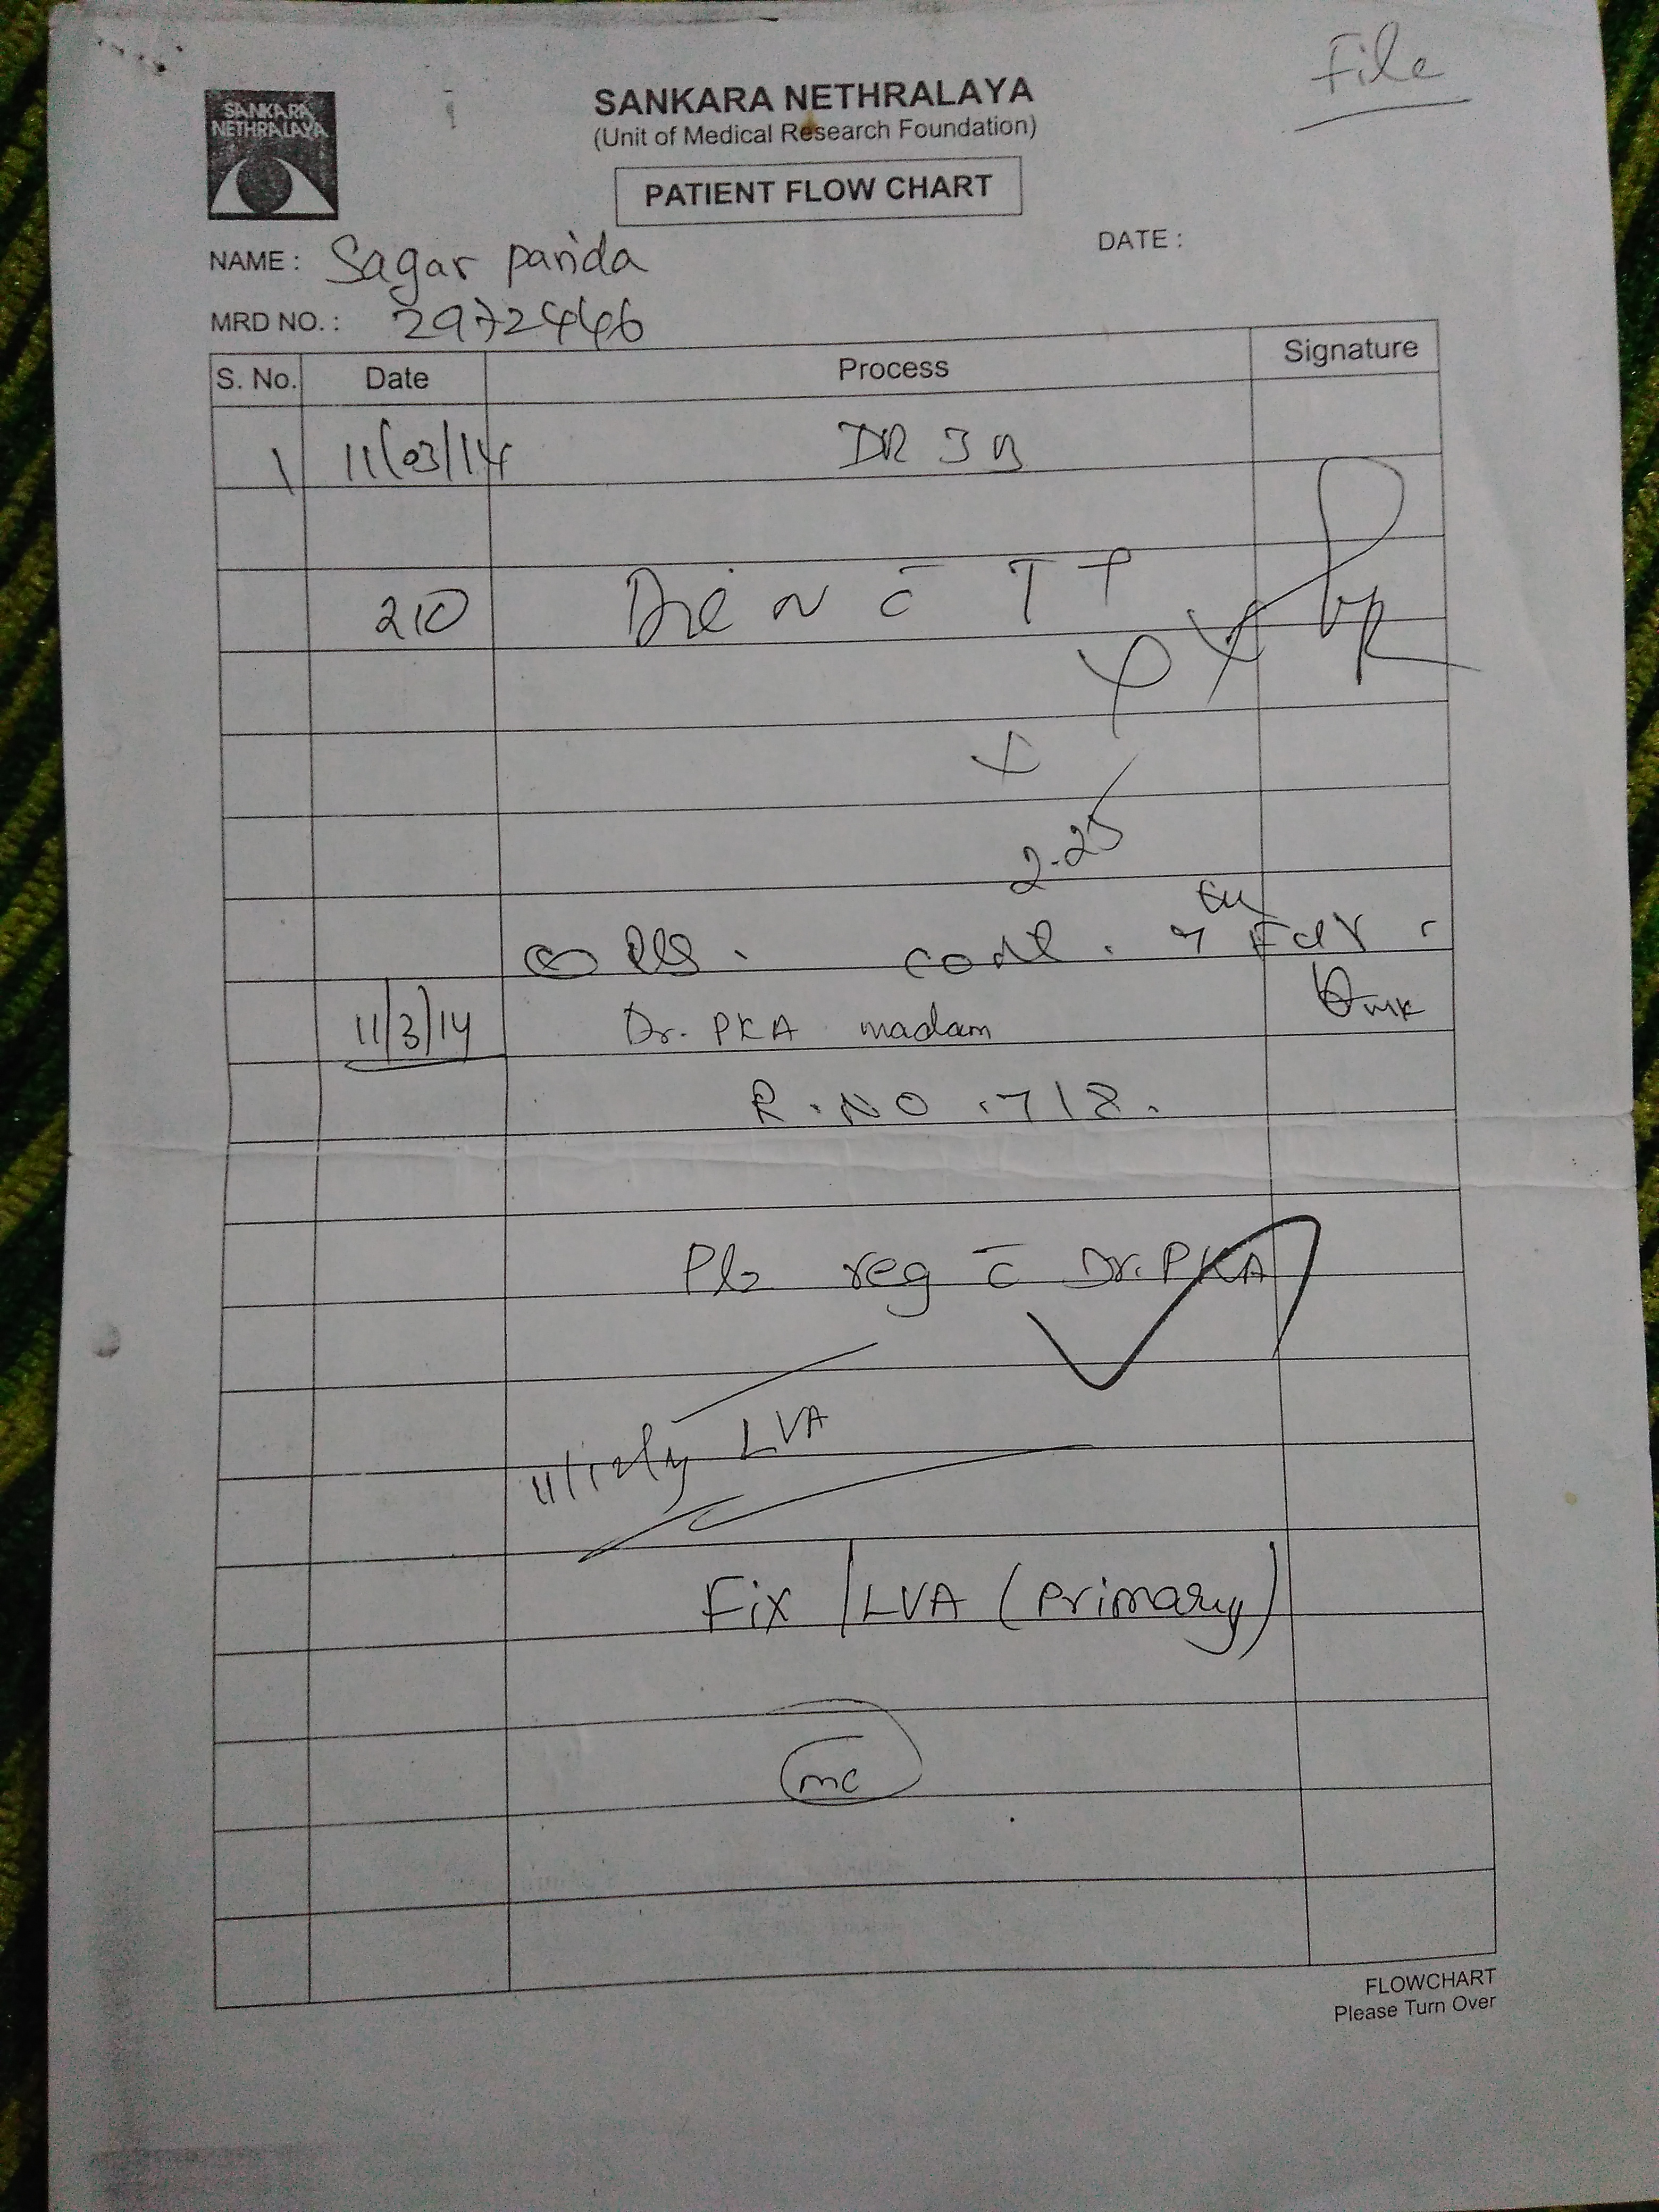 File
SANKARA NETHRALAYA
SANKARA NETHRALAYA
(Unit of Medical Research Foundation)
PATIENT FLOW CHART
DATE :
NAME : Sagar Parida
MRD NO. : 2972446
S. No. Date Process Signature
1 11/03/14 DR JB
210 c̄ T
2.25
code . 7th Flr .
11/3/14 Dr. PKA madam
R . NO . 712 .
Pls reg c̄ Dr. PKA
LVA
Fix LVA (Primary)
mc
FLOWCHART
Please Turn Over